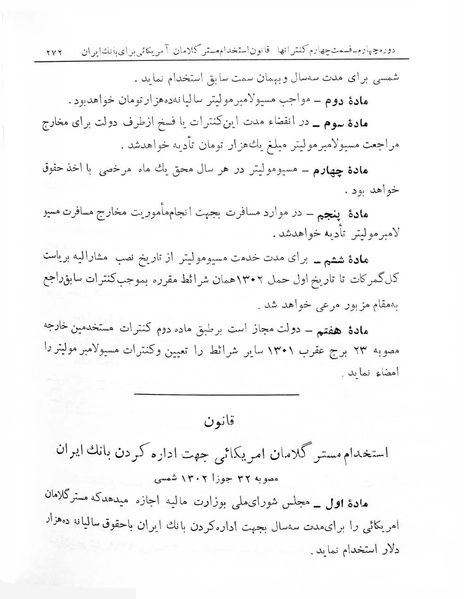 دوره چهارم ـ قسمت چهارم کنتراتها قانون استخدام مستر گلامان آمریکائی برای بانک ایران ۲۷۲
شمسی برای مدت سه‌سال و بهمان سمت سابق استخدام نماید .
مادهٔ دوم ـ مواجب مسیولامبرمولیتر سالیانه ده‌هزارتومان خواهدبود .
مادهٔ سوم ـ در انقضاء مدت این‌کنترات یا فسخ ازطرف دولت برای مخارج
مراجعت مسیولامبرمولیتر مبلغ یک‌هزار تومان تأدیه خواهدشد .
مادهٔ چهارم ـ مسیومولیتر در هر سال محق یک ماه مرخصی با اخذ حقوق
خواهد بود .
مادهٔ پنجم ـ در موارد مسافرت بجهت انجام‌مأموریت مخارج مسافرت مسیو
لامبرمولیتر تأدیه خواهدشد .
مادهٔ ششم ـ برای مدت خدمت مسیومولیتر از تاریخ نصب مشارالیه بریاست
کل‌گمرکات تا تاریخ اول حمل ۱۳۰۲ همان شرائط مقرره بموجب‌کنترات سابق‌راجع
به‌مقام مزبور مرعی خواهد شد .
مادهٔ هفتم ـ دولت مجاز است برطبق ماده دوم کنترات مستخدمین خارجه
مصوبه ۲۳ برج عقرب ۱۳۰۱ سایر شرائط را تعیین وکنترات مسیولامبر مولیتر را
امضاء نماید .
قانون
استخدام مستر گلامان امریکائی جهت اداره کردن بانک ایران
مصوبه ۳۲ جوزا ۱۳۰۲ شمسی
مادهٔ اول ـ مجلس شورای‌ملی بوزارت مالیه اجازه میدهدکه مسترگلامان
آمریکائی را برای‌مدت سه‌سال بجهت اداره‌کردن بانک ایران باحقوق سالیانه ده‌هزار
دلار استخدام نماید .